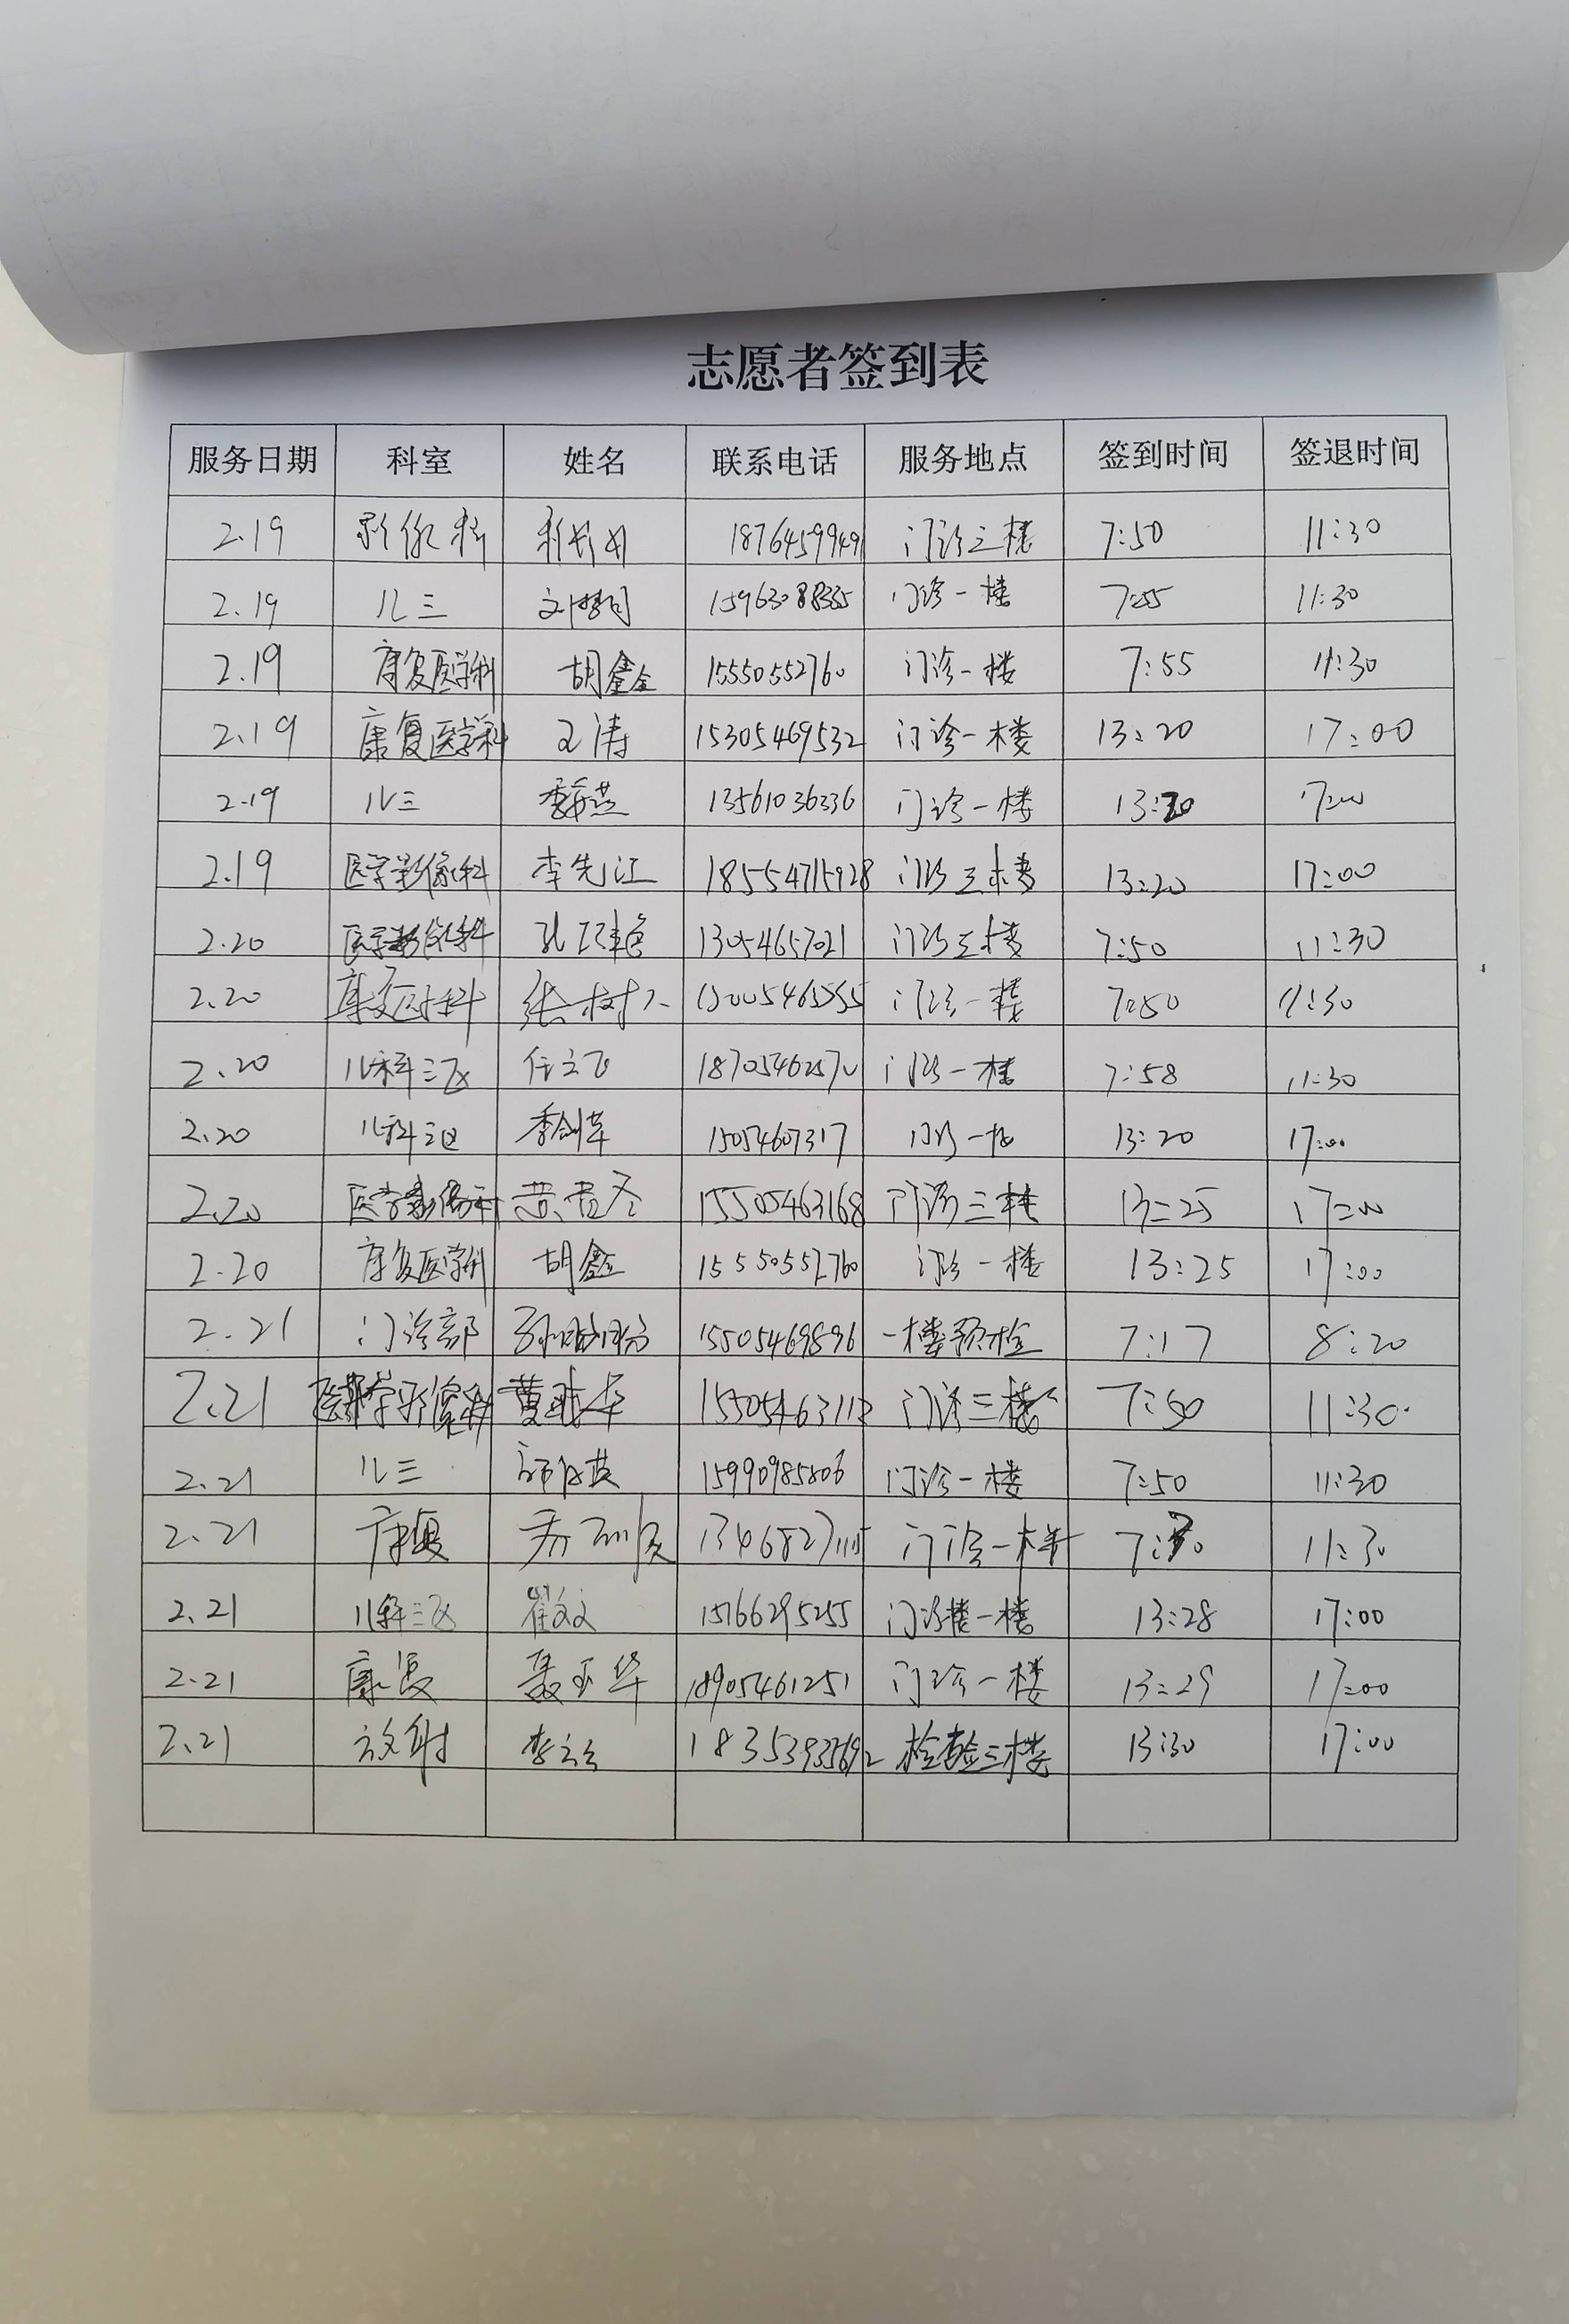 志愿者签到表
服务日期 科室 姓名 联系电话 服务地点 签到时间 签退时间
2.19 影像科 18764599491 门诊三楼 7:50 11:30
2.19 儿三 15963088355 门诊一楼 7:55 11:30
2.19 康复医学科 胡鑫鑫 15550552760 门诊一楼 7:55 11:30
2.19 康复医学科 王涛 15305469532 门诊一楼 13:20 17:00
2.19 儿三 13561036336 门诊一楼 13:20 17:00
2.19 医学影像科 李先江 18554715928 门诊三楼 13:20 17:00
2.20 医学影像科 13054657021 门诊三楼 7:50 11:30
2.20 门诊一楼 7:50 11:30
2.20 儿科三区 任立飞 18705462570 门诊一楼 7:58 11:30
2.20 儿科三区 15054607317 门诊一楼 13:20 17:00
2.20 医学影像科 15505463168 门诊三楼 13:25 17:00
2.20 康复医学科 胡鑫 15550552760 门诊一楼 13:25 17:00
2.21 门诊部 15505469896 一楼预检 7:17 8:20
2.21 医学影像科 15505463113 门诊三楼 7:50 11:30
2.21 儿三 15990985806 门诊一楼 7:50 11:30
2.21 康复 门诊一楼 11:30
2.21 儿科三区 崔文文 15766295255 门诊楼一楼 13:28 17:00
2.21 康复 聂玉华 18905461251 门诊一楼 13:29 17:00
2.21 放射 检验三楼 13:30 17:00